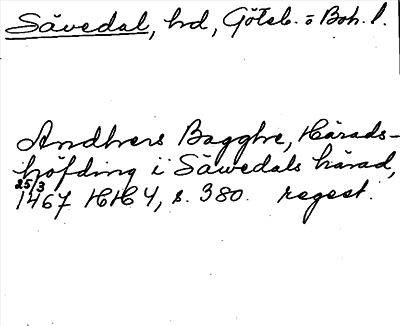 Sävedal, hrd, Göteb. o Boh. l.
Andhers Bagghe, Härads-
höfding i Säwedals härad,
25/3
1467 HH 4, s. 380. regest.